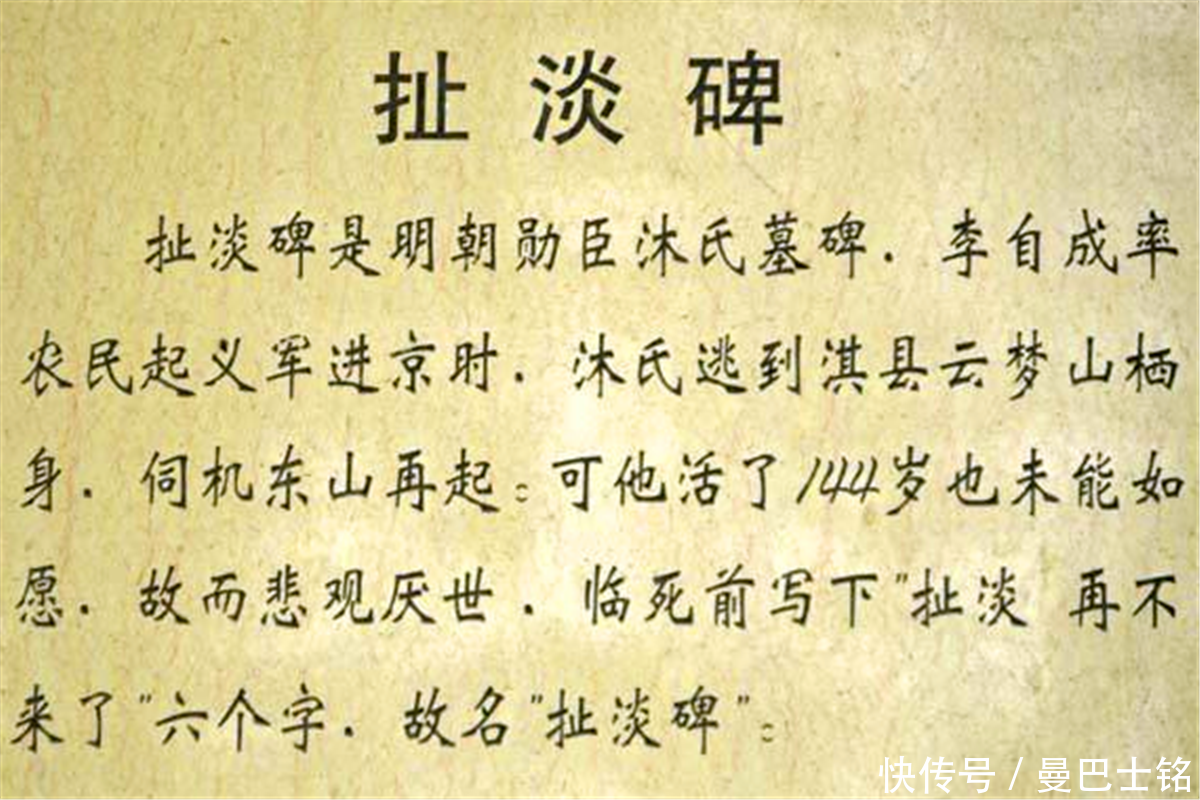 扯淡碑
扯淡碑是明朝勋臣沐氏墓碑．李自成率
农民起义军进京时．沐氏逃到淇县云梦山栖
身．伺机东山再起。可他活了144岁也未能如
愿．故而悲观厌世．临死前写下"扯淡 再不
来了"六个字．故名"扯淡碑"。
快传号 / 曼巴士铭